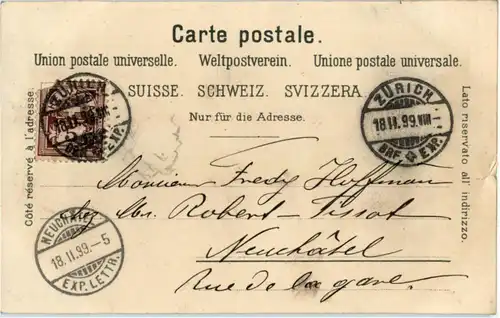 Carte postale.
Union postale universelle. Weltpostverein. Unione postale universale.
SUISSE. SCHWEIZ. SVIZZERA.
Nur für die Adresse.
Côté réservé à l'adresse.
Lato riservato all' indirizzo.
ZÜRICH
18.II.99.VIII
BRF. EXP.
ZÜRICH
18.II.99.VIII
EXP.
Monsieur Fredy Hoffmann
chez Mr. Robert-Tissot
Neuchâtel
Rue de la gare.
NEUCHÂTEL
18.II.99.-5
EXP. LETTR.